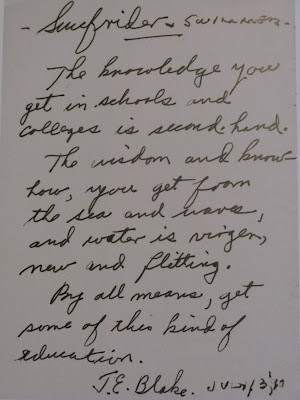 - Surfrider & Swimmers -
The knowledge you
get in schools and
colleges is second-hand.
The wisdom and know-
how, you get from
the sea and waves,
and water is virgen,
new and flitting.
By all means, get
some of this kind of
education.
J.E. Blake.